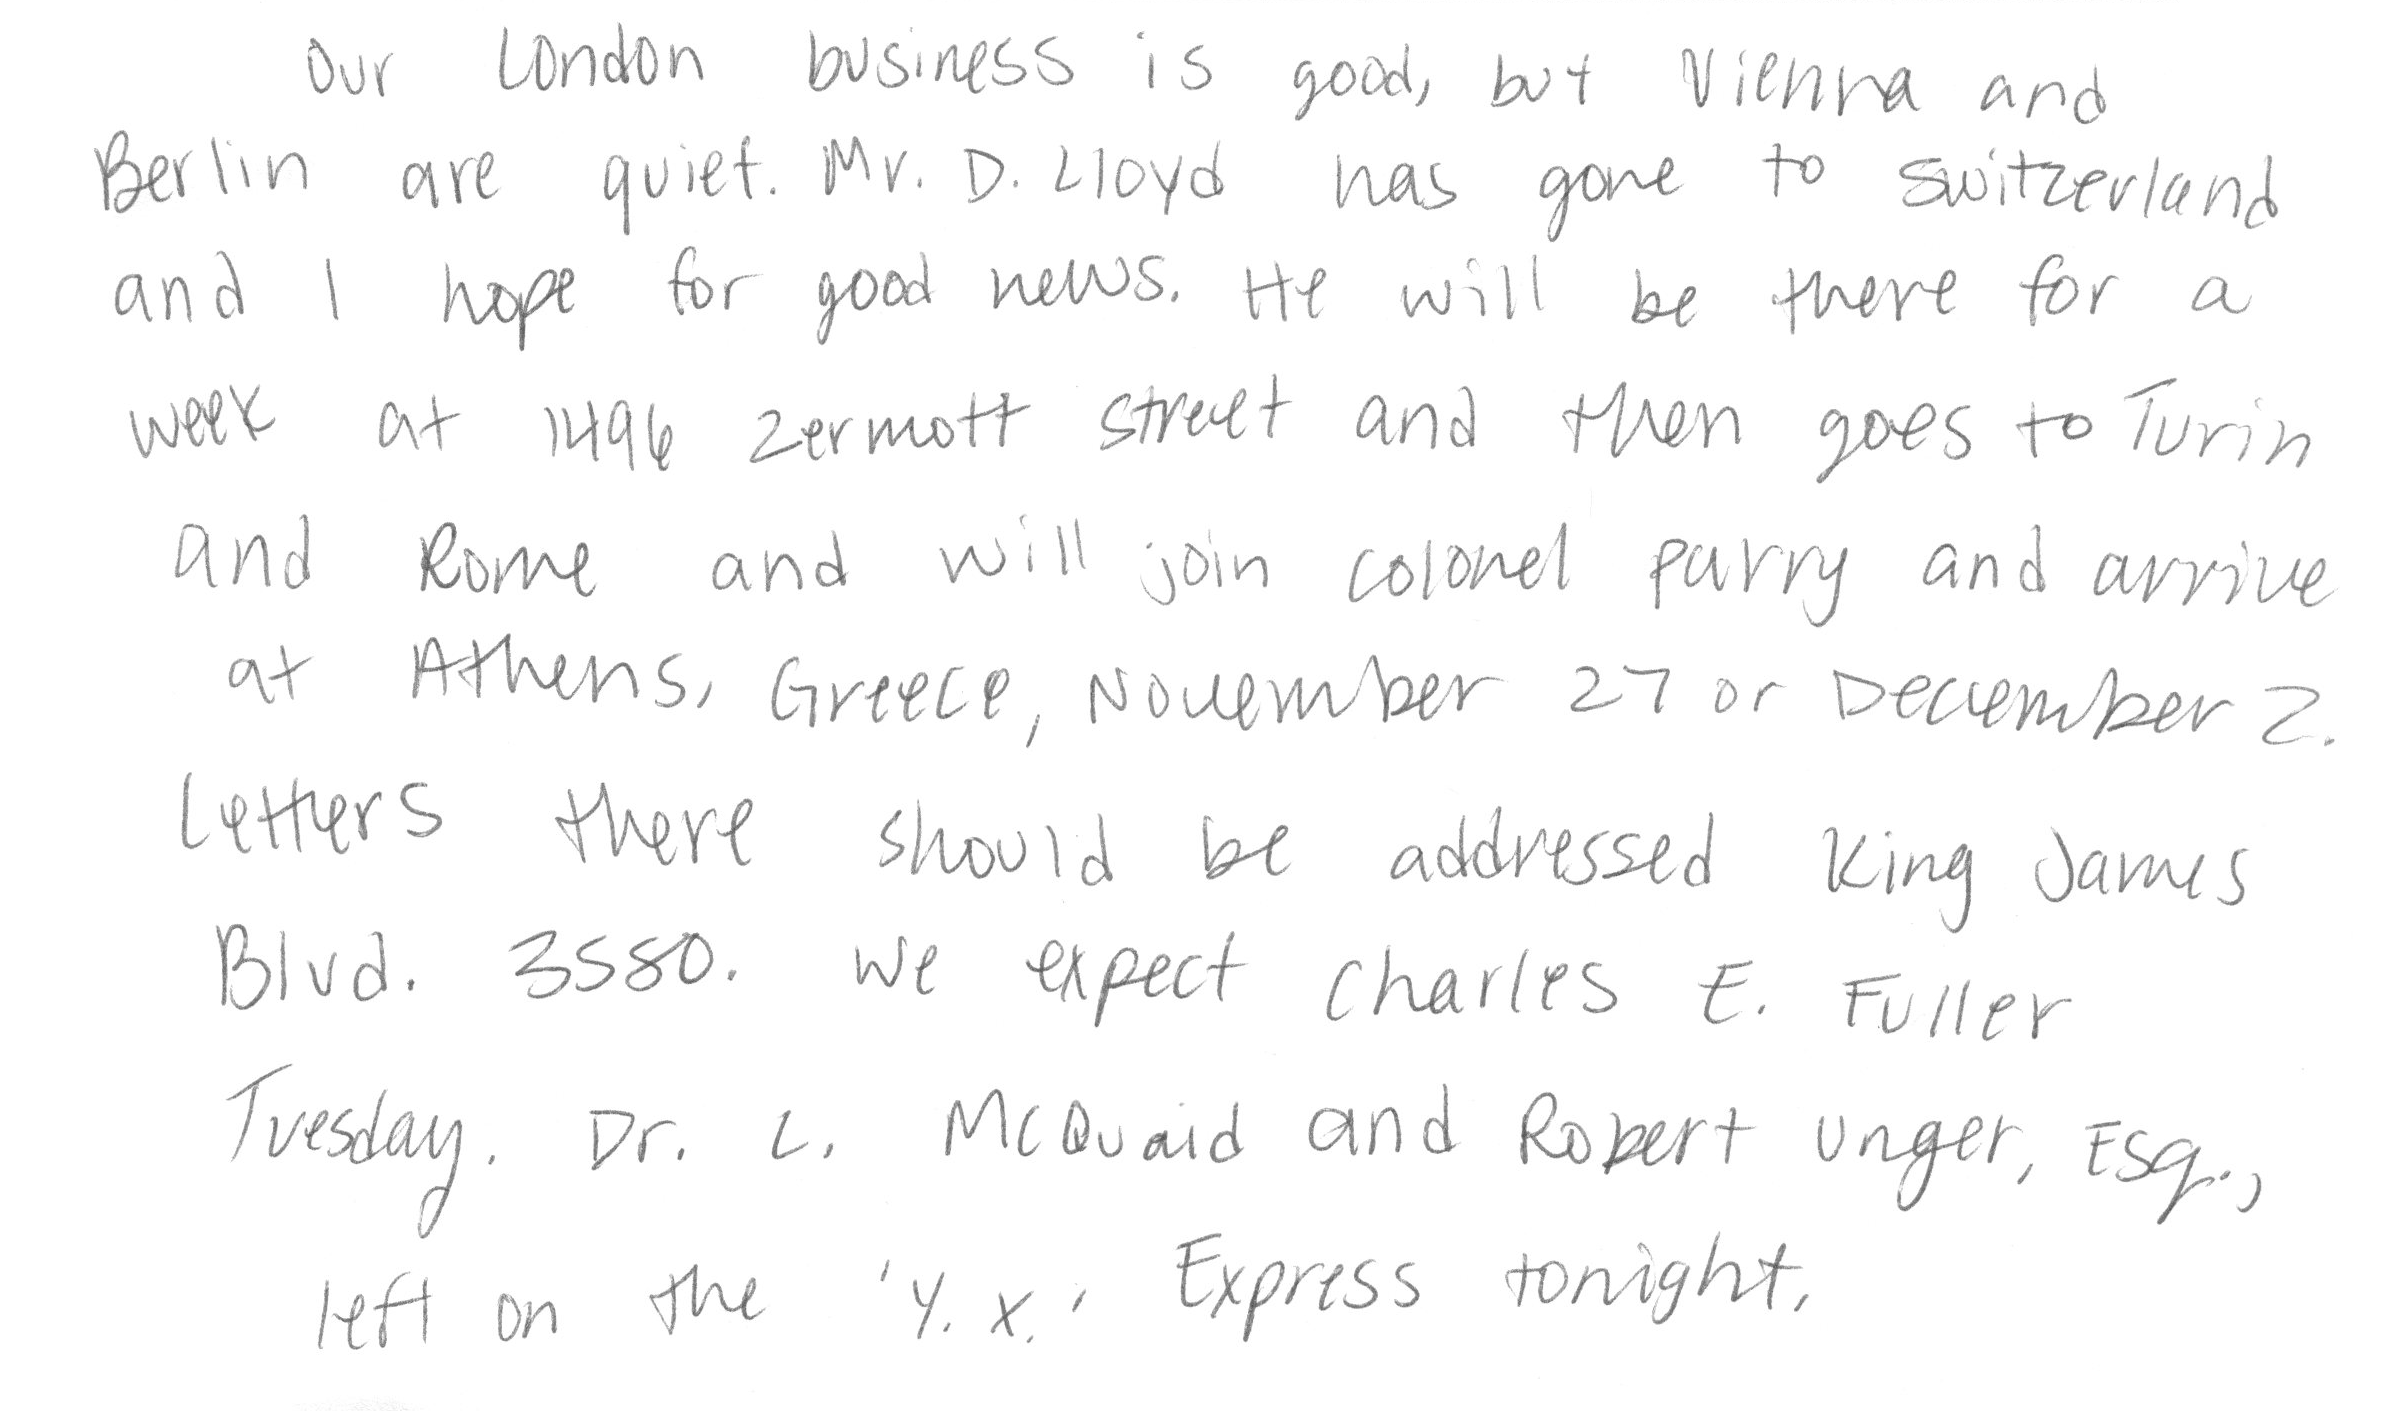 Our London business is good, but Vienna and
Berlin are quiet. Mr. D. Lloyd has gone to Switzerland
and I hope for good news. He will be there for a
week at 1496 Zermott street and then goes to Turin
and Rome and will join colonel parry and arrive
at Athens, Greece, November 27 or December 2.
Letters there should be addressed King James
Blvd. 3580. We expect Charles E. Fuller
Tuesday. Dr. L. McQuaid and Robert Unger, Esq.,
left on the 'Y.X.' Express tonight.